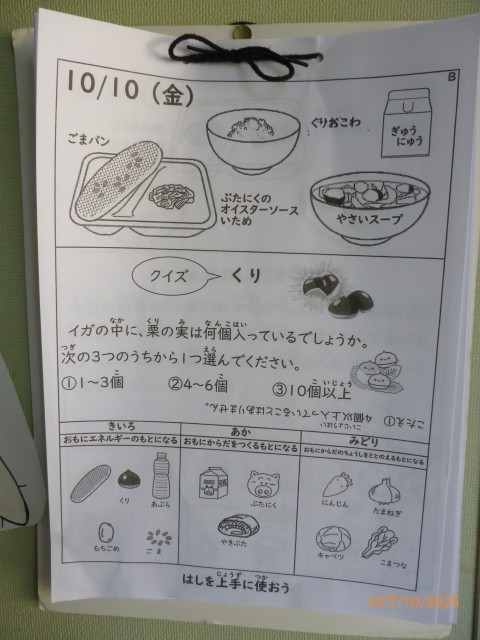 B
10/10（金）
ごまパン
くりおこわ
ぎゅうにゅう
ぶたにくの
オイスターソース
いため
やさいスープ
クイズ
くり
イガの中に、栗の実は何個入っているでしょうか。
次の3つのうちから1つ選んでください。
①1～3個
②4～6個
③10個以上
こたえ①
4個以上入っていることはありません。
きいろ
おもにエネルギーのもとになる
くり
あぶら
もちごめ
ごま
あか
おもにからだをつくるもとになる
ぶたにく
やきぶた
みどり
おもにからだのちょうしをととのえるもとになる
にんじん
たまねぎ
キャベツ
こまつな
はしを上手に使おう
OCT/10/2025